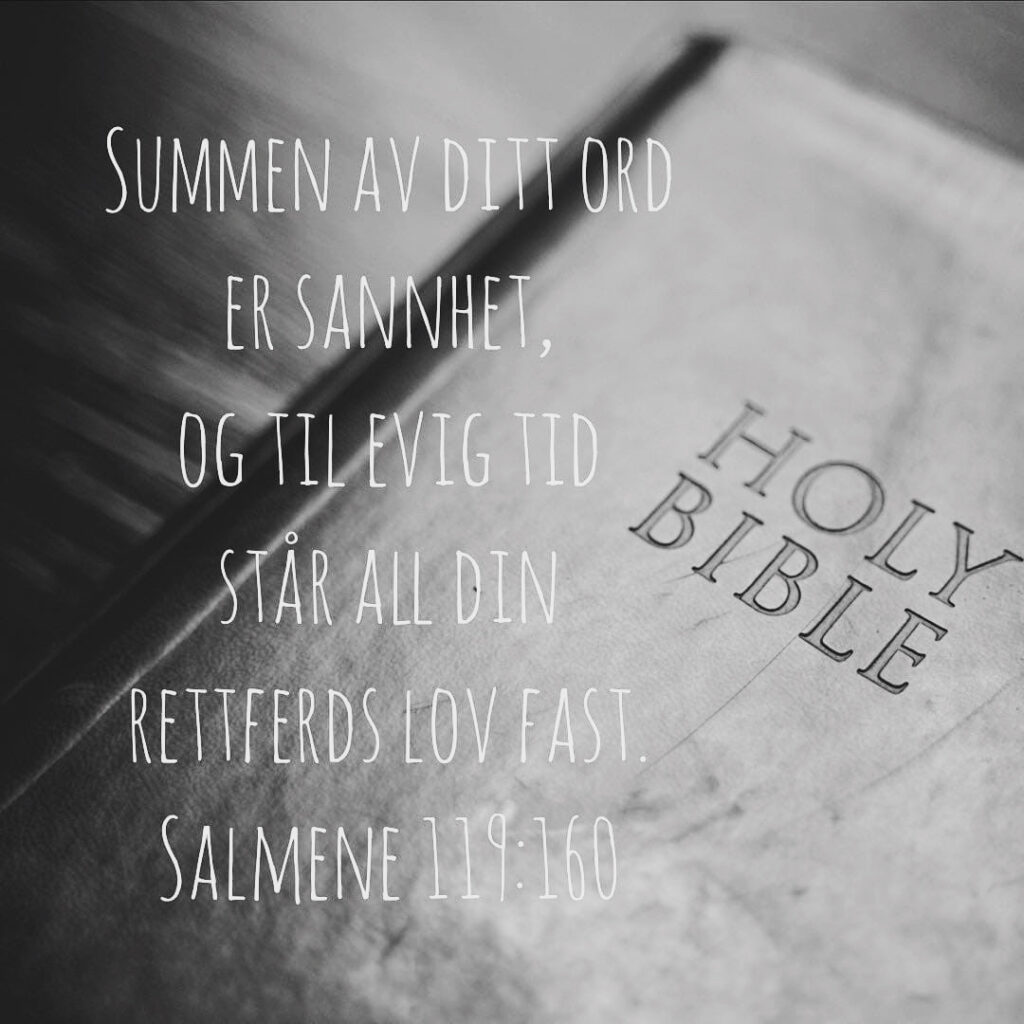 Summen av ditt ord
er sannhet,
og til evig tid
står all din
rettferds lov fast.
Salmene 119:160
HOLY
BIBLE